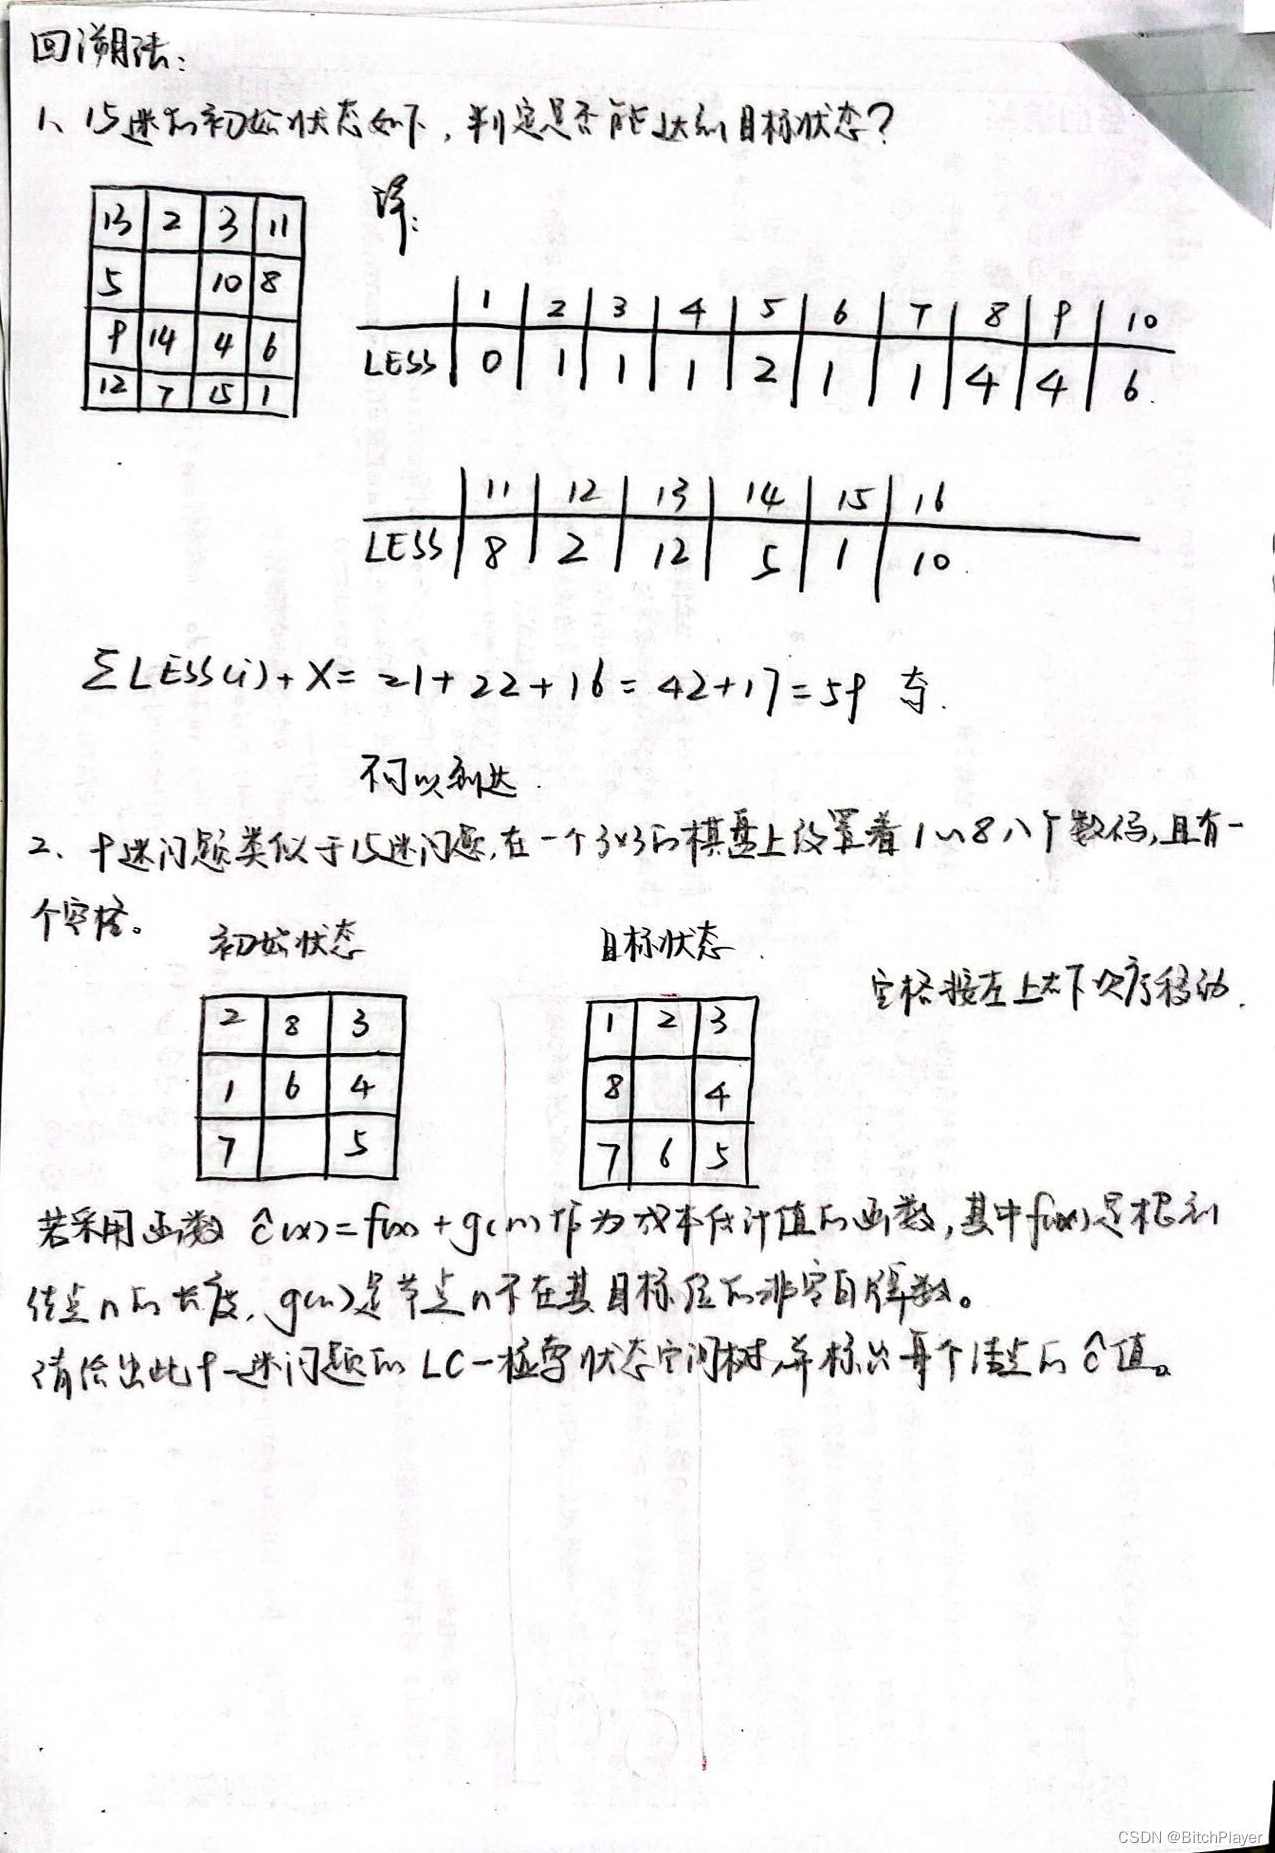 回溯法:
1、15迷的初始状态如下,判定是否能达到目标状态?
13 2 3 11
5 10 8
9 14 4 6
12 7 15 1
译:
1 2 3 4 5 6 7 8 9 10
LESS 0 1 1 1 2 1 1 4 4 6.
11 12 13 14 15 16
LESS 8 2 12 5 1 10.
ΣLESS(i)+X= 21+22+16=42+17=59 奇.
不可以到达.
2、9迷问题类似于15迷问题,在一个3×3的棋盘上设置着1~8八个数码,且有一
个空格。
初始状态
目标状态.
空格按左上右下次序移动.
2 8 3
1 6 4
7 5
1 2 3
8 4
7 6 5
若采用函数 ĉ(x)=f(x)+g(n)作为成本估计值的函数,其中f(x)是根到
结点n的长度,g(n)是节点n不在其目标位的非空白牌数。
请绘出此9-迷问题的LC-检索状态空间树,并标出每个结点的ĉ值。
CSDN @BitchPlayer